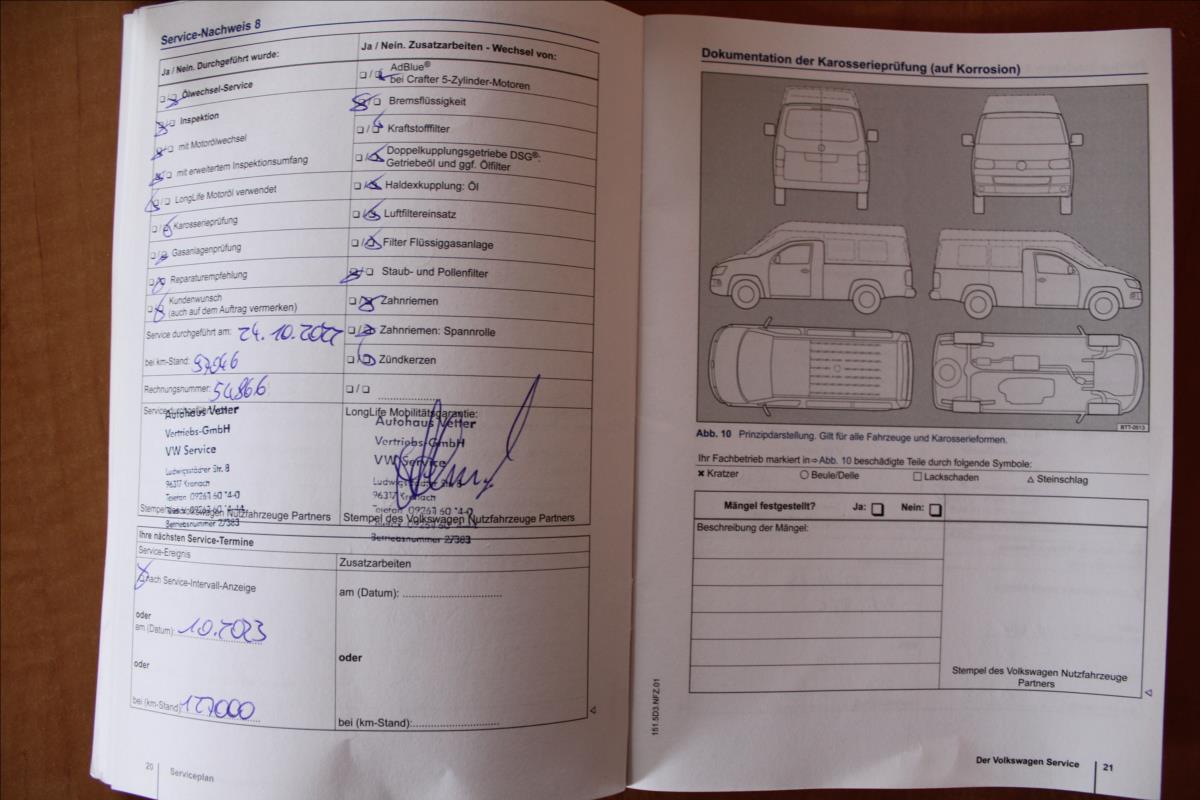 Service-Nachweis 8
Ja / Nein. Durchgeführt wurde:
Ölwechsel-Service
Inspektion
mit Motorölwechsel
mit erweitertem Inspektionsumfang
LongLife Motoröl verwendet
Karosserieprüfung
Gasanlagenprüfung
Reparaturempfehlung
Kundenwunsch
(auch auf dem Auftrag vermerken)
Service durchgeführt am: 24.10.2022
bei km-Stand: 97046
Rechnungsnummer: 54866
Ja / Nein. Zusatzarbeiten - Wechsel von:
AdBlue®
bei Crafter 5-Zylinder-Motoren
Bremsflüssigkeit
Kraftstofffilter
Doppelkupplungsgetriebe DSG®:
Getriebeöl und ggf. Ölfilter
Haldexkupplung: Öl
Luftfiltereinsatz
Filter Flüssiggasanlage
Staub- und Pollenfilter
Zahnriemen
Zahnriemen: Spannrolle
Zündkerzen
Autohaus Vetter
Vertriebs-GmbH
VW Service
Ludwigsstädter Str. 8
96317 Kronach
Telefon 09261 60 74-0
Betriebsnummer 27383
LongLife Mobilitätsgarantie:
Autohaus Vetter
Vertriebs-GmbH
VW Service
96317 Kronach
Telefon 09261 60 74-0
Stempel des Volkswagen Nutzfahrzeuge Partners
Betriebsnummer 27383
Ihre nächsten Service-Termine
Service-Ereignis
nach Service-Intervall-Anzeige
oder
am (Datum): 10.2023
oder
bei (km-Stand): 127000
Zusatzarbeiten
am (Datum):
oder
bei (km-Stand):
20 Serviceplan
Dokumentation der Karosserieprüfung (auf Korrosion)
BTT-0513
Abb. 10 Prinzipdarstellung. Gilt für alle Fahrzeuge und Karosserieformen.
Ihr Fachbetrieb markiert in ⇒ Abb. 10 beschädigte Teile durch folgende Symbole:
✖ Kratzer ○ Beule/Delle □ Lackschaden △ Steinschlag
Mängel festgestellt? Ja: Nein:
Beschreibung der Mängel:
Stempel des Volkswagen Nutzfahrzeuge
Partners
151.5D3.NFZ.01
Der Volkswagen Service 21